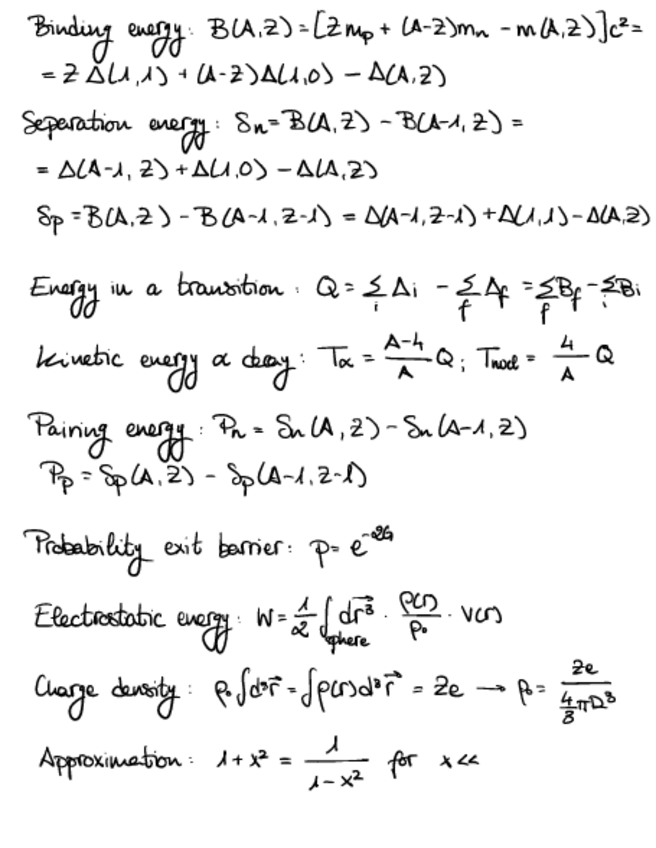 Binding energy: B(A,Z) = [Z mp + (A-Z)mn - m(A,Z)]c² =
= Z Δ(1,1) + (A-Z)Δ(1,0) - Δ(A,Z)
Separation energy: Sn = B(A,Z) - B(A-1, Z) =
= Δ(A-1, Z) + Δ(1,0) - Δ(A,Z)
Sp = B(A,Z) - B(A-1, Z-1) = Δ(A-1, Z-1) + Δ(1,1) - Δ(A,Z)
Energy in a transition: Q = Σi Δi - Σf Δf = Σf Bf - Σi Bi
Kinetic energy α decay: Tα = (A-4)/A Q; Tnucl = 4/A Q
Pairing energy: Pn = Sn(A,Z) - Sn(A-1, Z)
Pp = Sp(A,Z) - Sp(A-1, Z-1)
Probability exit barrier: p = e^-2G
Electrostatic energy: W = 1/2 ∫sphere dr⃗³ · ρ(r)/ρ₀ · V(r)
Charge density: ρ₀ ∫d³r⃗ = ∫ρ(r)d³r⃗ = Ze → ρ₀ = Ze/(4/3 πR³)
Approximation: 1 + x² = 1/(1 - x²) for x <<